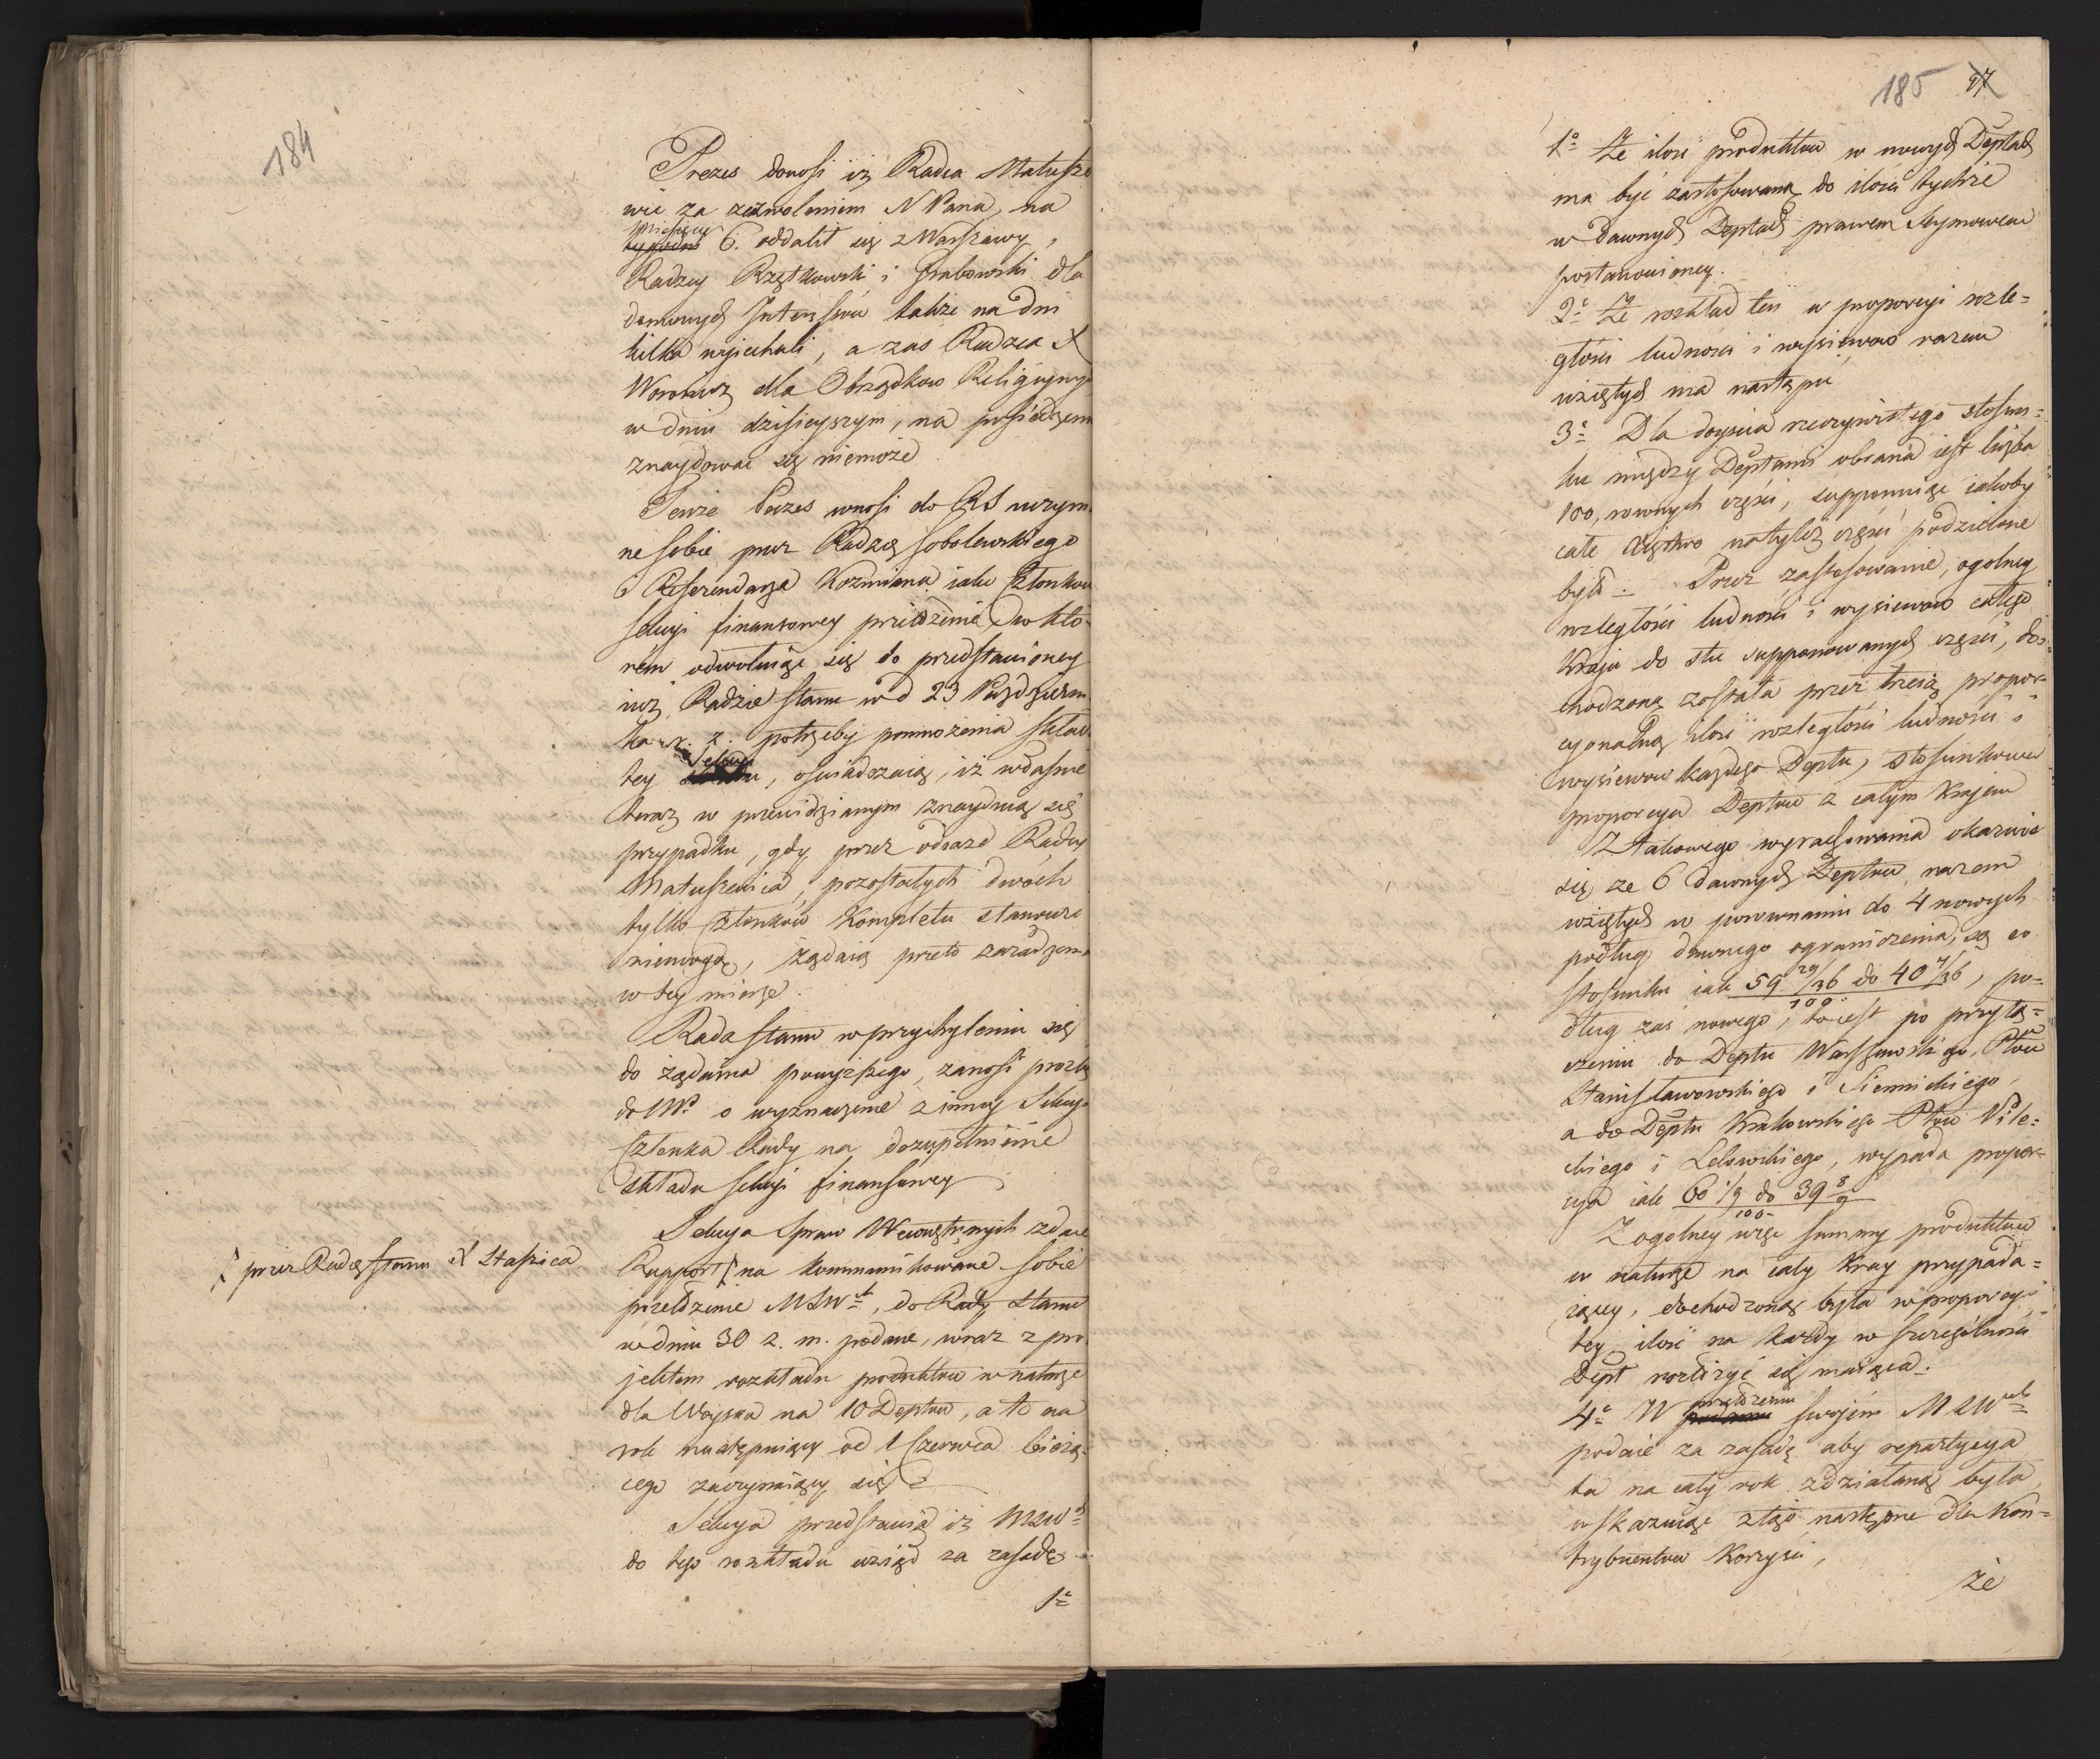 184
Prezes donosi iż Radca Matusze
wic za zezwoleniem N Pana, na
miesięcy
tygodni 6. oddalił się z Warszawy,
Radzcy Rzętkowski i Grabowski dla
domowych Interessów także na dni
kilka wyiechali, a zaś Radzca X
Woronicz dla Obrządkow Religiynych
w dniu dzisieyszym, na posiedzeniu
znaydować się niemoże
Tenże Prezes wnosi do RS uczynio
ne sobie przez Radzcę Sobolewskiego
i Referendarza Kozmiana iako Członkow
Sekcyi finansowey przełożenie, w któ-
rém odwołuiąc się do przedstawioney
iuż Radzie Stanu w d 23 Października
r. z. potrzeby pomnożenia składu
tey Sekcyi, oświadczaią, iż właśnie
teraz w przewidzianym znayduią się
przypadku, gdy przez odiazd Radcy
Matuszewica, pozostałych dwóch
tylko Członków Kompletu stanowić
niemogą, żądaią przeto zaradzenia
w tey mierze.
Rada Stanu w przychyleniu się
do żądania powyższego, zanosi prozbę
do o wyznaczenie z inney Sekcyi
Członka Rady na dozupełnienie
składu Sekcyi finansowey
Sekcya Spraw Wewnętrznych zdaie
Rapport na kommunikowane sobie
przełożenie MSW, do Rady Stanu
w dniu 30 z. m. podane, wraz z pro
jektem rozkładu produktow w naturze
dla Woyska na 10 Deptow, a to na
rok następuiący od 1 Czerwca bieżą-
cego zaczynaiący się
Sekcya przedstawia iż MSW
do tego rozkładu wziął za zasadę
1o
przez Radcę Stanu X Staszica
185 97
1o Że ilość produktow w nowych Deptach
ma być zastosowaną do ilości tychże
w dawnych Deptach prawem Seymowem
postanowioney.
2o Że rozkład ten w proporcyi rozle-
głości ludności i wysiewow razem
wziętych ma nastąpić
3o Dla doyścia rzeczywistego stosun-
ku między Deptami obrana iest liczba
100, rownych części, supponuiąc iakoby
całe Xięstwo natyleż części podzielone
było. Przez zastosowanie, ogolney
rozległości ludności i wysiewow całego
Kraju do stu supponowanych części, do-
chodzoną została przez trzecią propor-
cyonalną ilość rozległości ludności i
wysiewow każdego Deptu, stosunkowa
proporcya Deptow z całym Krajem
Z takowego wyrachowania okazuie
się ze 6 dawnych Deptow razem
wziętych w porownaniu do 4 nowych
podług dawnego ograniczenia, są w
stosunku iak 59 29/36 do 40 7/36, po-
100
dług zaś nowego, to iest po przyłą-
czeniu do Deptu Warszawskiego, Ptow
Stanisławowskiego i Siennickiego
a do Deptu Krakowskiego Ptow Pile-
ckiego i Lelowskiego, wypada propor-
cya iak 60 1/9 do 39 8/9
100
Z ogolney więc summy produktow
w naturze na cały Kray przypada-
iącey, dochodzoną była w proporcyi
tey, ilość na każdy w szczegolności
Dept rozłożyć się maiąca.
przełożeniu
4o W swojém MSW
podaie za zasadę aby repartycya
ta na cały rok zdziałaną była
wskazuiąc ztąd następne dla Kon-
trybuentow Korzyści,
że